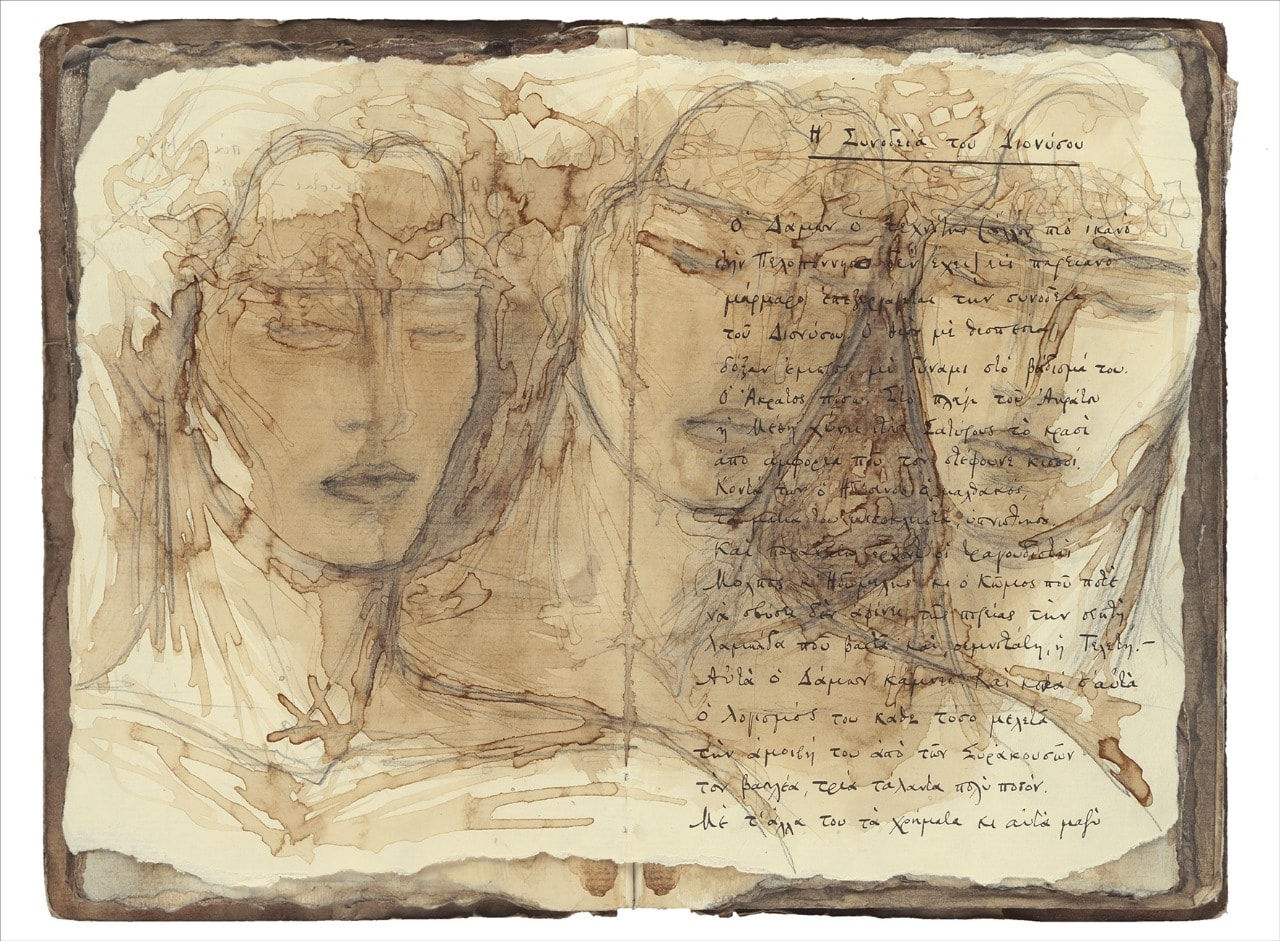 Η Συνοδεία του Διονύσου
Ὁ Δάμων ὁ τεχνίτης (ἄλλον πιὸ ἱκανὸ
στὴν Πελοπόννησο δὲν ἔχει) εἰς παριανὸ
μάρμαρο ἐπεξεργάζεται τὴν συνοδεία
τοῦ Διονύσου. Ὁ θεὸς μὲ θεσπεσία
δόξαν ἐμπρός, μὲ δύναμι στὸ βάδισμά του.
Ὁ Ἄκρατος πίσω. Στὸ πλάγι τοῦ Ἀκράτου
ἡ Μέθη χύνει στοὺς Σατύρους τὸ κρασὶ
ἀπὸ ἀμφορέα ποὺ τὸν στέφουνε κισσοί.
Κοντά των ὁ Ἡδύοινος ὁ μαλθακός,
τὰ μάτια του μισοκλειστά, ὑπνωτικός.
Καὶ παρακάτω ἔρχοντ' οἱ τραγουδισταὶ
Μόλπος κ' Ἡδυμελής, κι ὁ Κῶμος ποὺ ποτὲ
νὰ σβύσει δὲν ἀφίνει τῆς πορείας τὴν σεπτὴ
λαμπάδα ποὺ βαστᾶ· καί, σεμνοτάτη, ἡ Τελετή.—
Αὐτὰ ὁ Δάμων κάμνει. Καὶ κοντὰ σ' αὐτὰ
ὁ λογισμός του κάθε τόσο μελετᾶ
τὴν ἀμοιβή του ἀπὸ τῶν Συρακουσῶν
τὸν βασιλέα, τρία τάλαντα, πολὺ ποσόν.
Μὲ τ' ἄλλα του τὰ χρήματα κι αὐτὰ μαζὺ